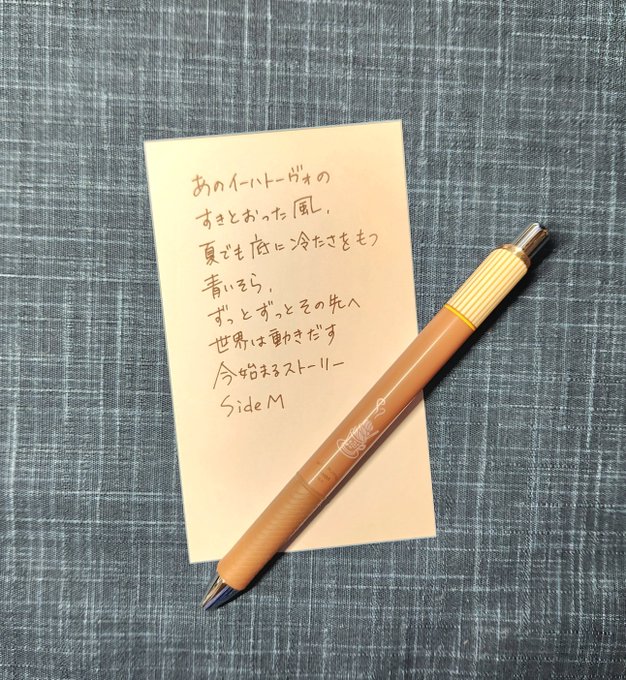 あのイーハトーヴォの
すきとおった風、
夏でも底に冷たさをもつ
青いそら、
ずっとずっとその先へ
世界は動きだす
今始まるストーリー
SideM
Coffee